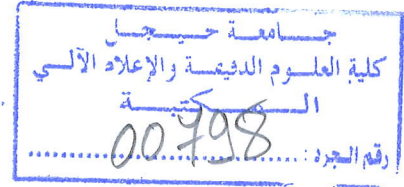 جامعة جيجل
كلية العلوم الدقيقة والإعلام الآلي
المكتبة
رقم الجرد : 00798